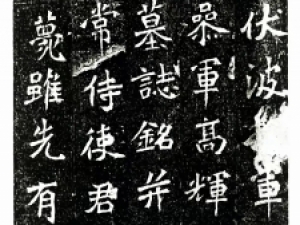 伏波軍
叅軍高輝
墓誌銘并
常侍使君
薨雖先有